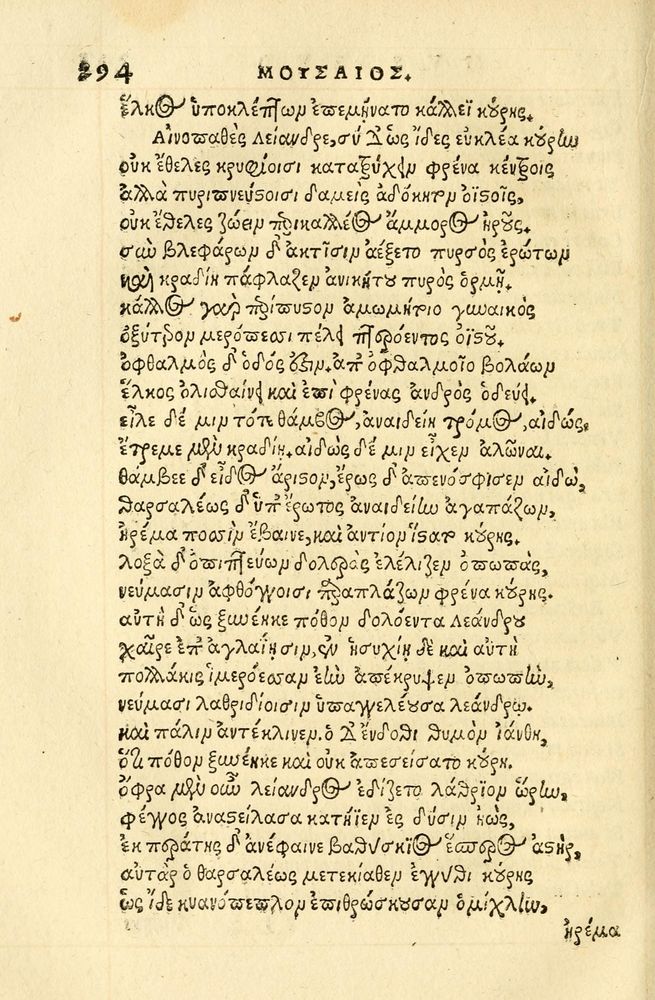 294 ΜΟΥΣΑΙΟΣ.
ἕλκος ὑποκλέπτων ἐπεμήνατο κάλλεϊ κούρης.
Αἰνοπαθὲς Λείανδρε, σὺ δ' ὡς ἴδες εὐκλέα κούρην
οὐκ ἔθελες κρυφίοισι κατατρύχειν φρένα κέντροις
ἀλλὰ πυριπνεύστοισι δαμεὶς ἀδόκητον ὀϊστοῖς,
οὐκ ἔθελες ζώειν περικαλλέος ἄμμορος ἡροῦς.
σὺν βλεφάρων δ' ἀκτῖσιν ἀέξετο πυρσὸς ἐρώτων
καὶ κραδίη πάφλαζεν ἀνικήτου πυρὸς ὁρμῇ.
κάλλος γὰρ περίπυστον ἀμωμήτοιο γυναικὸς
ὀξύτερον μερόπεσσι πέλει πτερόεντος ὀϊστοῦ.
ὀφθαλμὸς δ' ὁδός ἐστιν. ἀπ' ὀφθαλμοῖο βολάων
ἕλκος ὀλισθαίνει καὶ ἐπὶ φρένας ἀνδρὸς ὁδεύει.
εἷλε δέ μιν τότε θάμβος, ἀναιδείη τρόμος, αἰδώς,
ἔτρεμε μὲν κραδίη. αἰδὼς δέ μιν εἶχεν ἁλῶναι.
θάμβεε δ' εἶδος ἄριστον, ἔρως δ' ἀπενόσφισεν αἰδῶ,
θαρσαλέως δ' ὑπ' ἔρωτος ἀναιδείην ἀγαπάζων,
ἠρέμα ποσσὶν ἔβαινε, καὶ ἀντίον ἵστατο κούρης.
λοξὰ δ' ὀπιπτεύων δολερὰς ἐλέλιζεν ὀπωπάς,
νεύμασιν ἀφθόγγοισι παραπλάζων φρένα κούρης.
αὐτὴ δ' ὡς ξυνέηκε πόθον δολόεντα Λεάνδρου
χαῖρε ἐπ' ἀγλαΐῃσιν, ἐν ἡσυχίῃ δὲ καὶ αὐτὴ
πολλάκις ἱμερόεσσαν ἑὴν ἀπέκρυψεν ὀπωπήν,
νεύμασι λαθριδίοισιν ὑπαγγελέουσα λεάνδρῳ.
καὶ πάλιν ἀντέκλινεν. ὁ δ' ἔνδοθι θυμὸν ἰάνθη,
ὅτι πόθον ξυνέηκε καὶ οὐκ ἀπεσείσατο κούρη.
ὄφρα μὲν οὖν λείανδρος ἐδίζετο λάθριον ὥρην,
φέγγος ἀναστείλασα κατήϊεν ἐς δύσιν ἠώς,
ἐκ περάτης δ' ἀνέφαινε βαθύσκιος ἕσπερος ἀστήρ,
αὐτὰρ ὁ θαρσαλέως μετεκίαθεν ἐγγύθι κούρης
ὡς ἴδε κυανόπεπλον ἐπιθρώσκουσαν ὀμίχλην,
ἠρέμα